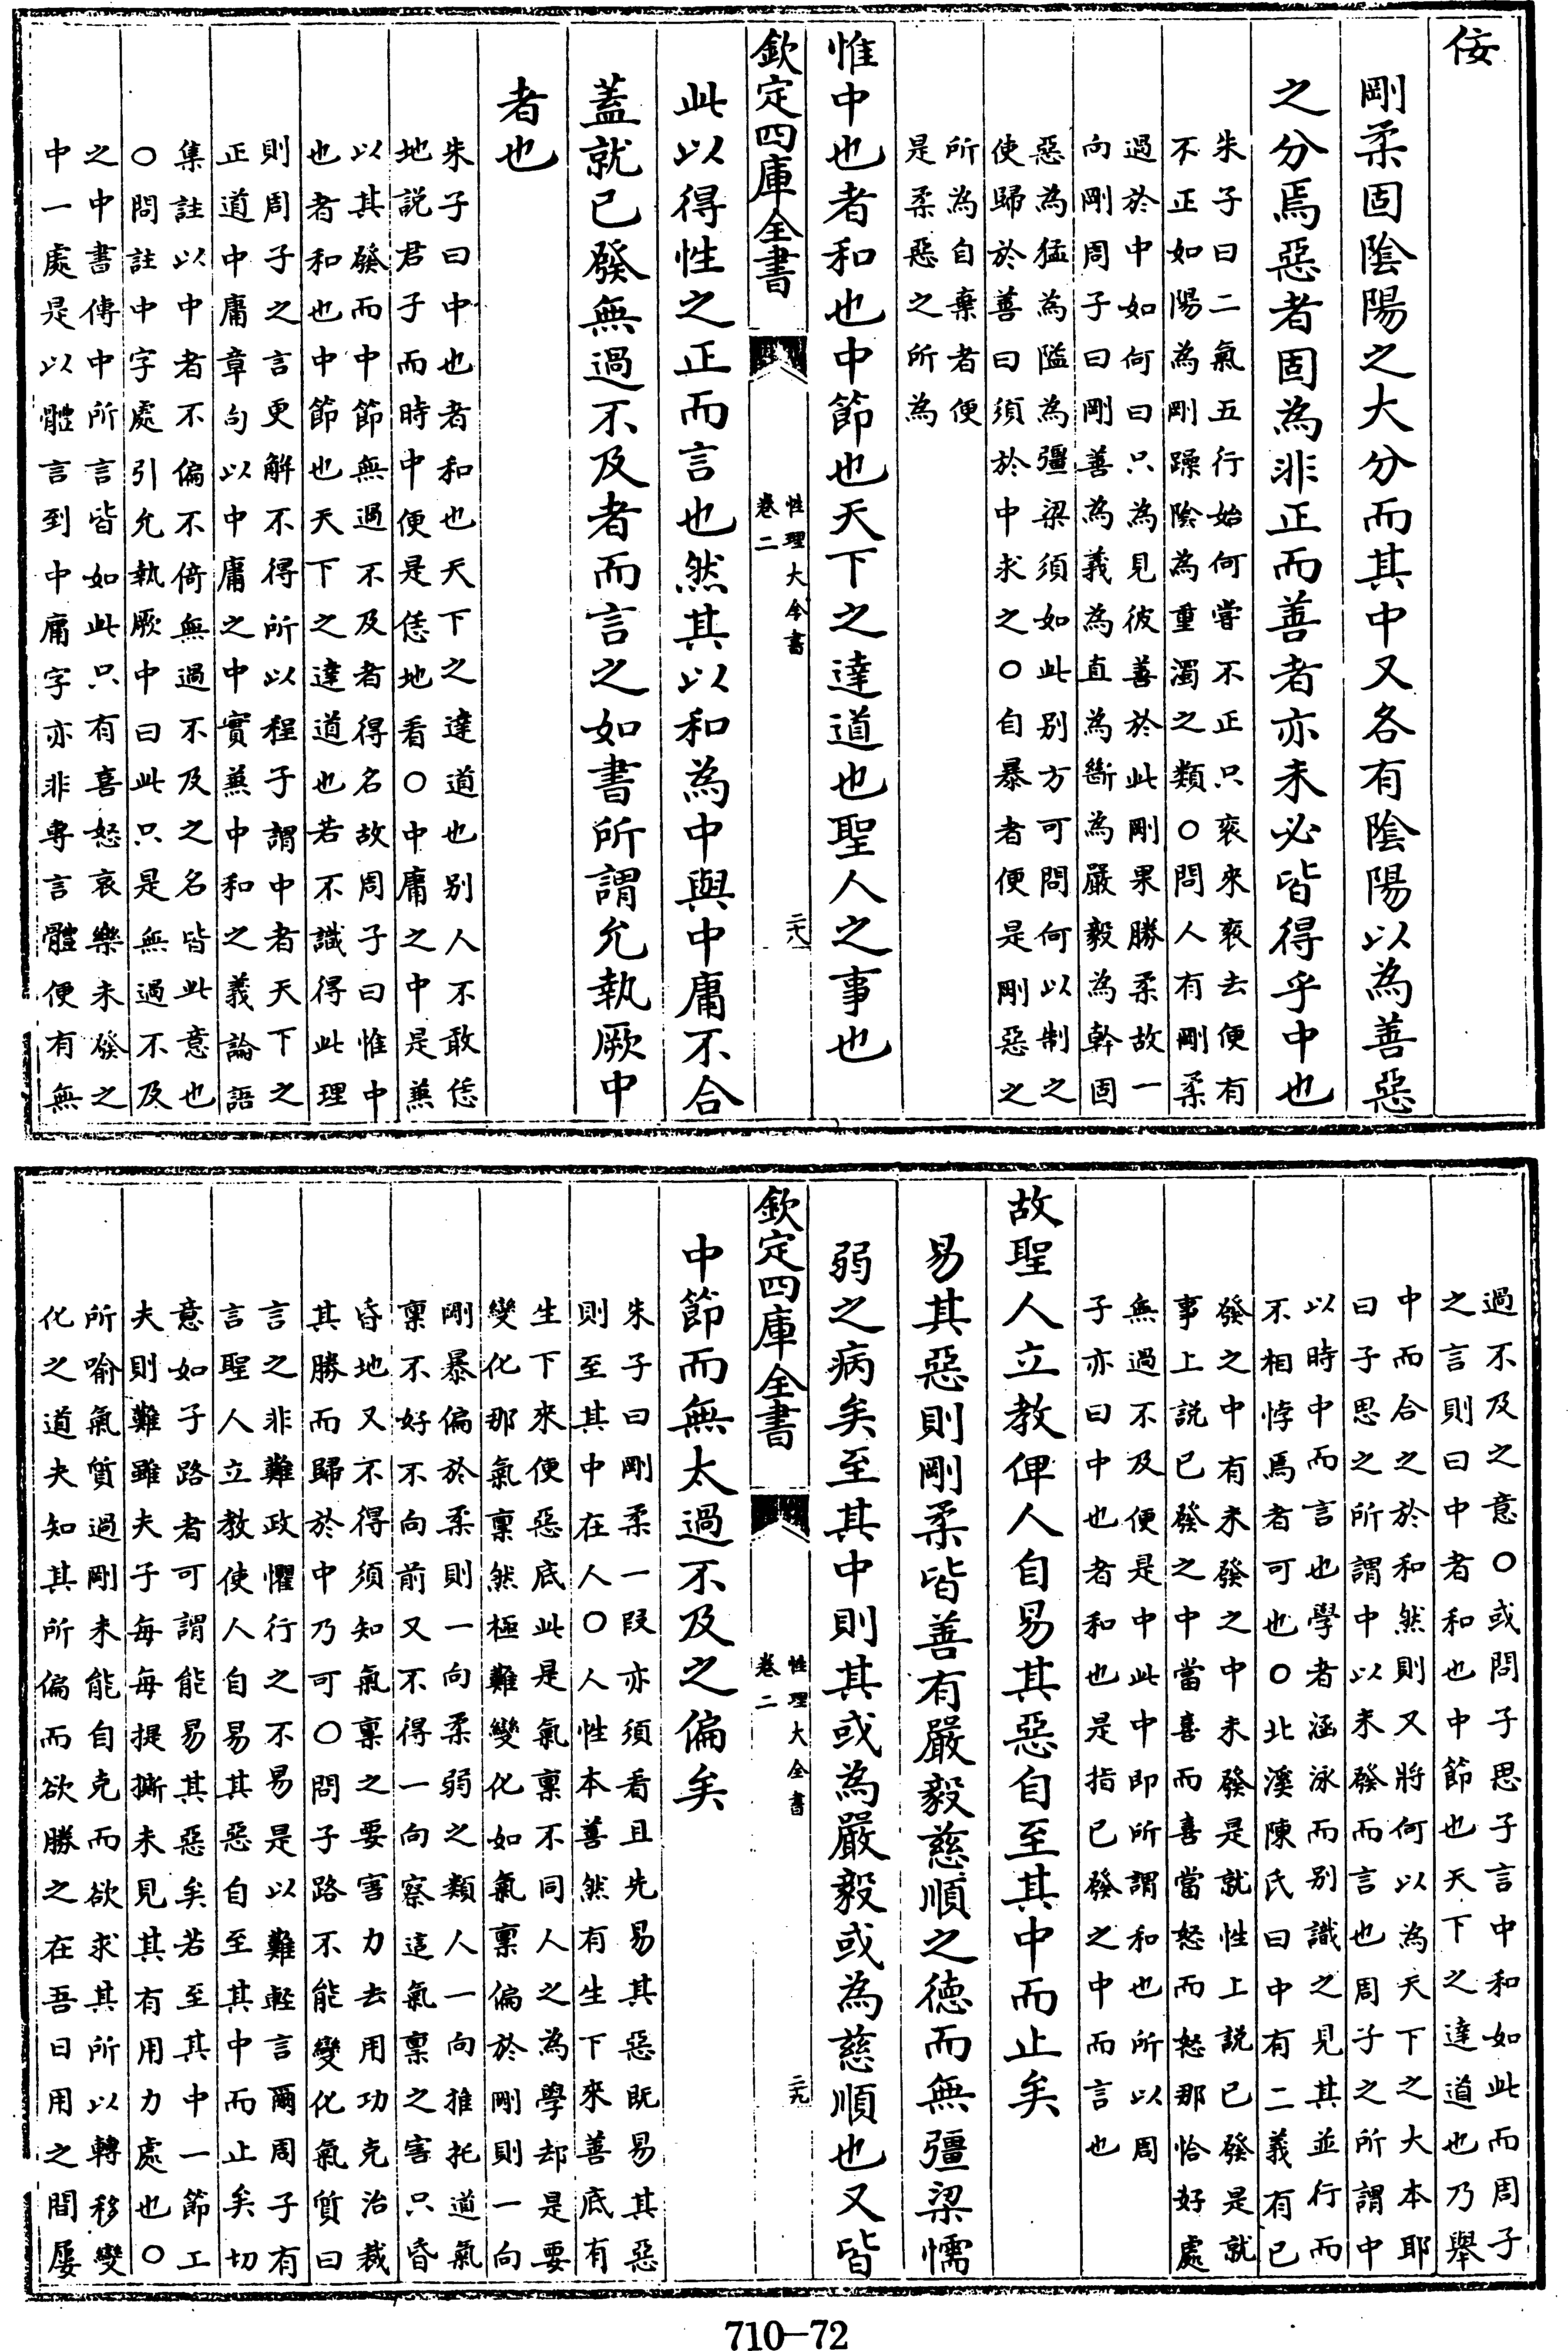 佞
剛柔固陰陽之大分而其中又各有陰陽以為善惡
之分焉惡者固為非正而善者亦未必皆得乎中也
朱子曰二氣五行始何嘗不正只衮來衮去便有
不正如陽為剛躁陰為重濁之類○問人有剛柔
過於中如何曰只為見彼善於此剛果勝柔故一
向剛周子曰剛善為義為直為斷為嚴毅為幹固
惡為猛為隘為彊梁須如此别方可問何以制之
使歸於善曰須於中求之○自暴者便是剛惡之
所為自棄者便
是柔惡之所為
惟中也者和也中節也天下之達道也聖人之事也
欽定四庫全書
性理大全書
卷二
二十八
此以得性之正而言也然其以和為中與中庸不合
蓋就已發無過不及者而言之如書所謂允執厥中
者也
朱子曰中也者和也天下之達道也别人不敢恁
地説君子而時中便是恁地看○中庸之中是兼
以其發而中節無過不及者得名故周子曰惟中
也者和也中節也天下之達道也若不識得此理
則周子之言更解不得所以程子謂中者天下之
正道中庸章句以中庸之中實兼中和之義論語
集註以中者不偏不倚無過不及之名皆此意也
○問註中字處引允執厥中曰此只是無過不及
之中書傳中所言皆如此只有喜怒哀樂未發之
中一處是以體言到中庸字亦非専言體便有無
過不及之意○或問子思子言中和如此而周子
之言則曰中者和也中節也天下之達道也乃舉
中而合之於和然則又將何以為天下之大本耶
曰子思之所謂中以未發而言也周子之所謂中
以時中而言也學者涵泳而别識之見其並行而
不相悖焉者可也○北溪陳氏曰中有二義有已
發之中有未發之中未發是就性上説已發是就
事上説已發之中當喜而喜當怒而怒那恰好處
無過不及便是中此中即所謂和也所以周
子亦曰中也者和也是指已發之中而言也
故聖人立教俾人自易其惡自至其中而止矣
易其惡則剛柔皆善有嚴毅慈順之徳而無彊梁懦
弱之病矣至其中則其或為嚴毅或為慈順也又皆
欽定四庫全書
性理大全書
卷二
二十九
中節而無太過不及之偏矣
朱子曰剛柔一段亦須看且先易其惡既易其惡
則至其中在人○人性本善然有生下來善底有
生下來便惡底此是氣稟不同人之為學却是要
變化那氣稟然極難變化如氣稟偏於剛則一向
剛暴偏於柔則一向柔弱之類人一向推托道氣
稟不好不向前又不得一向不察這氣稟之害只昏
昏地又不得須知氣稟之要害力去用功克治裁
其勝而歸於中乃可○問子路不能變化氣質曰
言之非難政懼行之不易是以難輕言爾周子有
言聖人立教使人自易其惡自至其中而止矣切
意如子路者可謂能易其惡矣若至其中一節工
夫則難雖夫子每每提撕未見其有用力處也○
所喻氣質過剛未能自克而欲求其所以轉移變
化之道夫知其所偏而欲勝之在吾日用之間屡
710-72